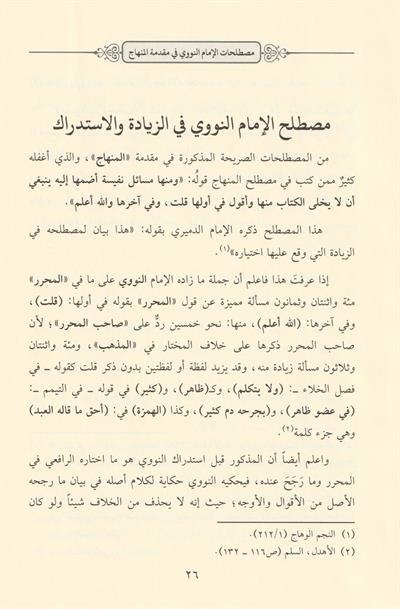 مصطلحات الإمام النووي في مقدمة المنهاج
مصطلح الإمام النووي في الزيادة والاستدراك
من المصطلحات الصريحة المذكورة في مقدمة «المنهاج»، والذي أغفله
كثيرٌ ممن كتب في مصطلح المنهاج قولُه: «ومنها مسائل نفيسة أضمها إليه ينبغي
أن لا يخلى الكتاب منها وأقول في أولها قلت، وفي آخرها والله أعلم».
هذا المصطلح ذكره الإمام الدميري بقوله: «هذا بيان لمصطلحه في
الزيادة التي وقع عليها اختياره»(١).
إذا عرفتَ هذا فاعلم أن جملة ما زاده الإمام النووي على ما في «المحرر»
مئة واثنتان وثمانون مسألة مميزة عن قول «المحرر» بقوله في أولها: (قلت)،
وفي آخرها: (الله أعلم)، منها: نحو خمسين ردٌّ على «صاحب المحرر»؛ لأن
صاحب المحرر ذكرها على خلاف المختار في «المذهب»، ومئة واثنتان
وثلاثون مسألة زيادة منه، وقد يزيد لفظة أو لفظتين بدون ذكر قلت كقوله ـ في
فصل الخلاء ـ: (ولا يتكلم)، وكـ(ظاهر)، و(كثير) في قوله ـ في التيمم ـ:
(في عضو ظاهر)، و(بجرحه دم كثير)، وكذا (الهمزة) في: (أحق ما قاله العبد)
وهي جزء كلمة(٢).
واعلم أيضاً أن المذكور قبل استدراك النووي هو ما اختاره الرافعي في
المحرر وما رَجَحَ عنده، فيحكيه النووي حكاية لكلام أصله في بيان ما رجحه
الأصل من الأقوال والأوجه؛ حيث إنه لا يحذف من الخلاف شيئاً ولو كان
(١) النجم الوهاج (٢١٢/١).
(٢) الأهدل، السلم (ص١١٦ ـ ١٣٢).
٢٦